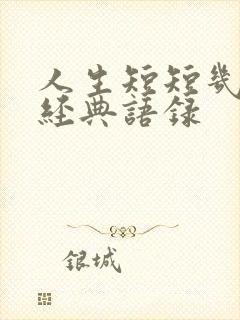 人生短短幾
經典語录
銀城